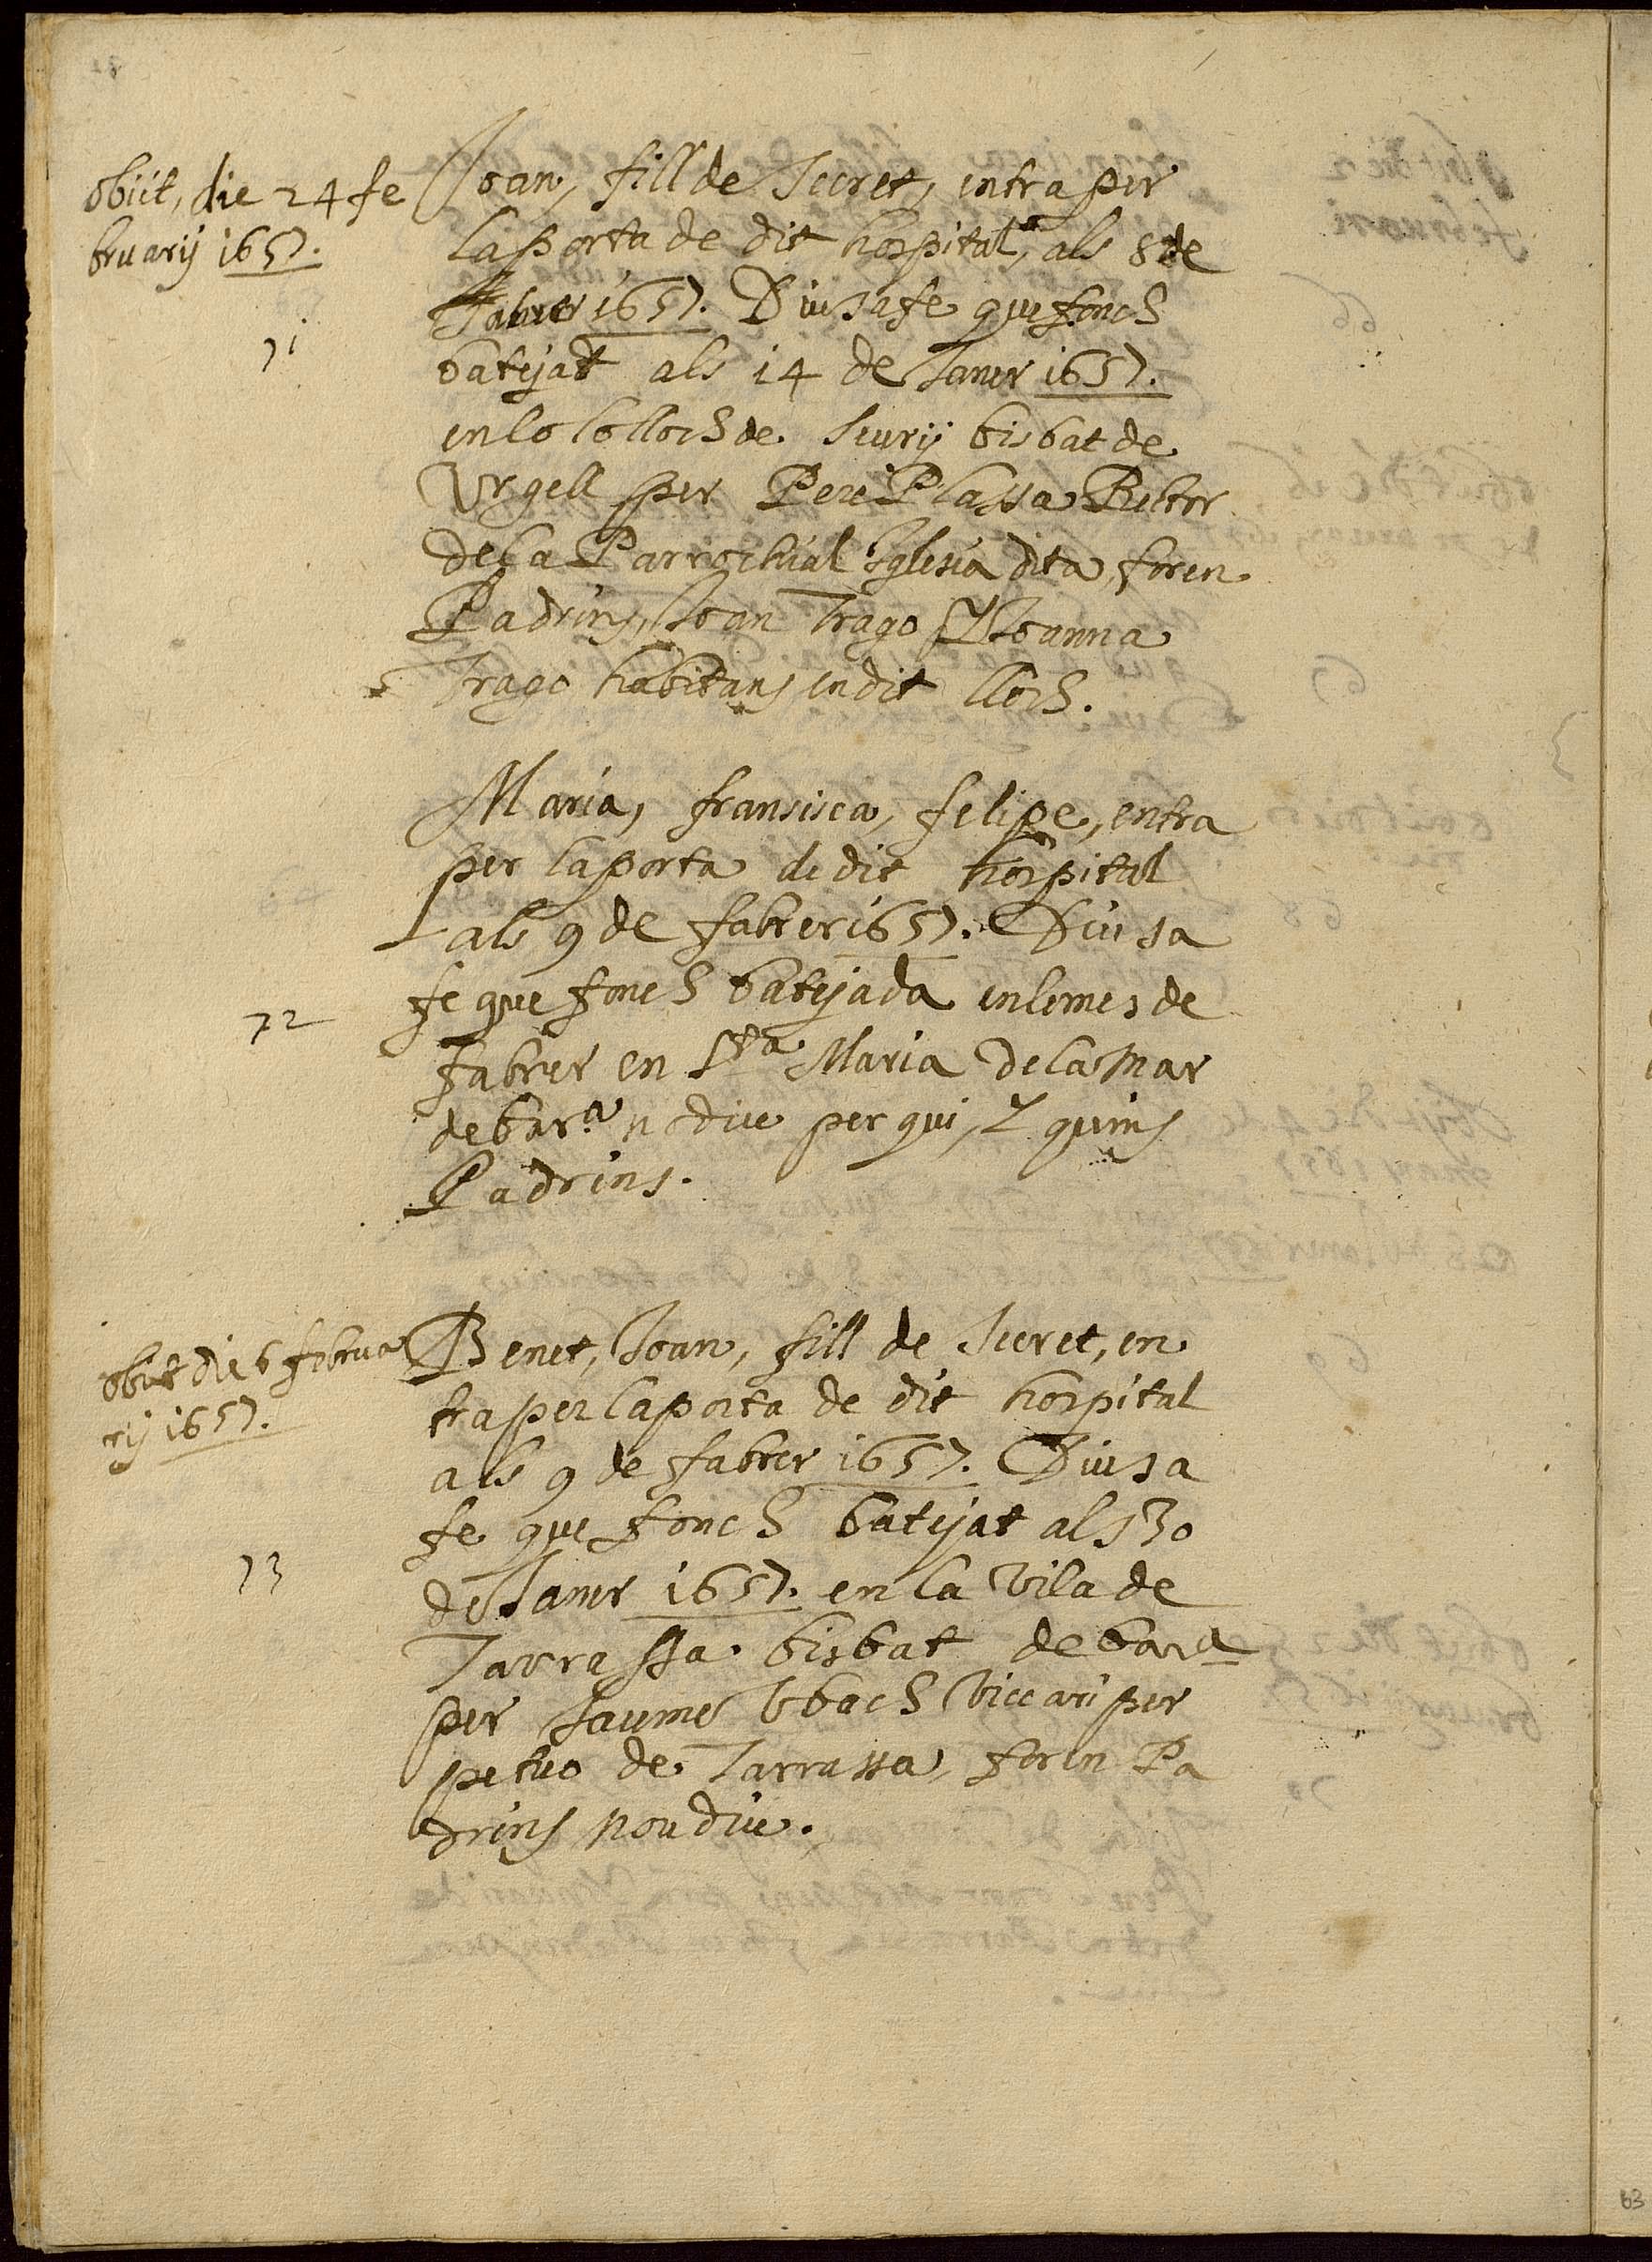 obiit, die 24 fe
bruarij 1657.
71
Joan, fill de Secret, entra per
la porta de dit hospital, als 8 de
Fabrer 1657. Diu sa fe que fonch
batejat als 14 de Janer 1657.
en lo lo lloch de Seurij bisbat de
Urgell per Pere Plassa Rector
de la Parrochial Iglesia dita, foren
Padrins, Joan Trago y Joanna
Trago habitans en dit lloch.
Maria, Fransisca, Felipe, entra
per la porta de dit hospital
als 9 de Fabrer 1657. Diu sa
72
fe que fonch batejada en lo mes de
Fabrer en Sta Maria de la Mar
de bar.a no diu per qui, y quins
Padrins.
obiit die 6 februa
rij 1657.
Benet, Joan, fill de Secret, en
tra per la porta de dit hospital
als 9 de Fabrer 1657. Diu sa
fe que fonch batejat als 30
73
de Janer 1657. en la Vila de
Tarrassa bisbat de bar.a
per Jaume Ubach Viccari per
petuo de Tarrassa, foren Pa
drins nou diu.
63